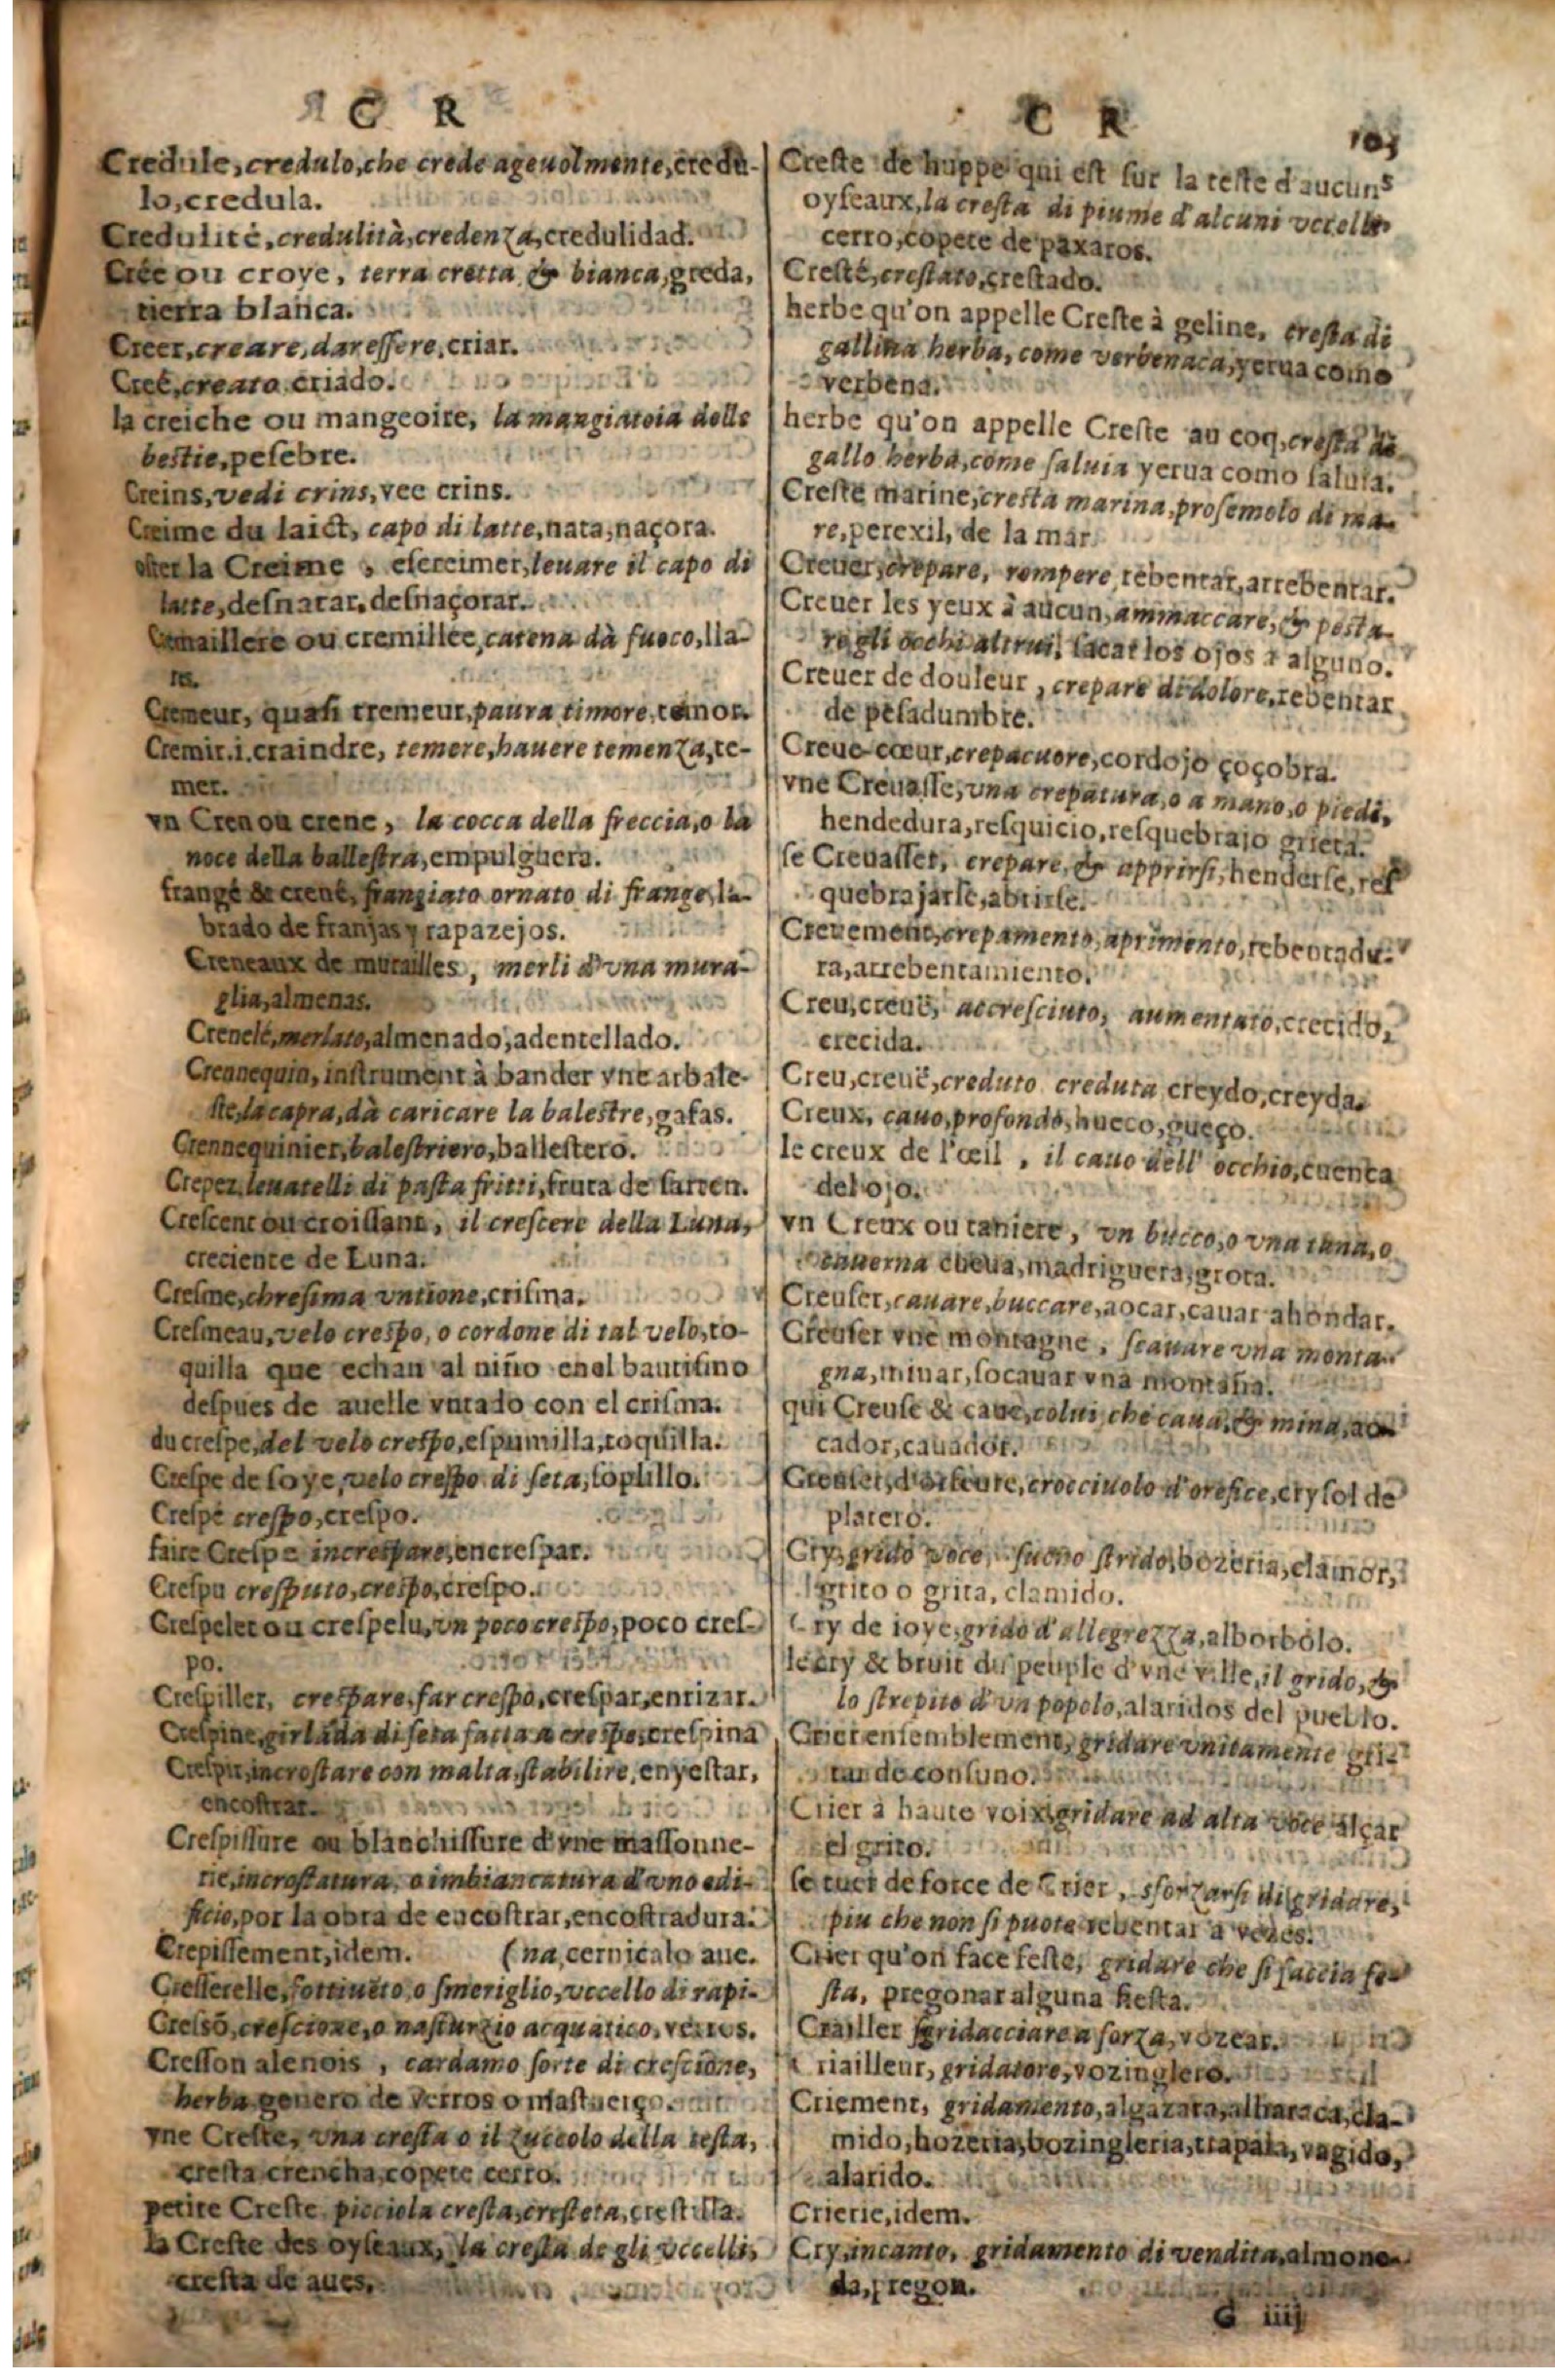 C R
Credule, credulo, che crede ageuolmente, credu-
lo, credula.
Credulité, credulità, credenza, credulidad.
Crée ou croye, terra cretta & bianca, greda,
tierra blanca.
Creer, creare, dar essere, criar.
Creé, creato criado.
la creiche ou mangeoire, la mangiatoia delle
bestie, pesebre.
Creins, vedi crins, vee crins.
Creime du laict, capo di latte, nata, naçora.
oster la Creime, escreimer, leuare il capo di
latte, desnatar, desnaçorar.
Cremaillere ou cremillee, catena dà fuoco, lla-
res.
Cremeur, quasi tremeur, paura timore, temor.
Cremir .i. craindre, temere, hauere temenza, te-
mer.
vn Cren ou crene, la cocca della freccia, o la
noce della ballestra, empulguera.
frangé & crené, frangiato ornato di frange, la-
brado de franjas y rapazejos.
Creneaux de murailles, merli d'vna mura-
glia, almenas.
Crenelé, merlato, almenado, adentellado.
Crennequin, instrument à bander vne arbale-
ste, la capra, dà caricare la balestre, gafas.
Crennequinier, balestriero, ballestero.
Crepez, leuatelli di pasta fritti, fruta de sarten.
Crescent ou croissant, il crescere della Luna,
creciente de Luna.
Cresme, chresima vntione, crisma.
Cresmeau, velo crespo, o cordone di tal velo, to-
quilla que echan al niño enel bautismo
despues de auelle vntado con el crisma.
du crespe, del velo crespo, espumilla, toquilla.
Crespe de soye, velo crespo di seta, soplillo.
Crespé crespo, crespo.
faire Crespe increspare, encrespar.
Crespu cresputo, crespo, crespo.
Crespelet ou crespelu, vn poco crespo, poco cres-
po.
Crespiller, crespare, far crespo, crespar, enrizar.
Crespine, girlãda di seta fatta a crespe, crespina
Crespir, incrostare con malta, stabilire, enyestar,
encostrar.
Crespissure ou blanchissure d'vne massonne-
rie, incrostatura, o imbiancatura d'vno edi-
ficio, por la obra de encostrar, encostradura.
Crepissement, idem. (na, cernicalo aue.
Cresserelle, fottiuẽto, o smeriglio, vccello di rapi-
Cressõ, crescione, o nasturzio acquatico, verros.
Cresson alenois, cardamo sorte di crescione,
herba genero de verros o mastuerço.
vne Creste, vna cresta o il zuccolo della testa,
cresta crencha, copete cerro.
petite Creste picciola cresta, cresteta, crestilla.
la Creste des oyseaux, la cresta de gli vccelli,
cresta de aues.
C R 103
Creste de huppe qui est sur la teste d'aucuns
oyseaux, la cresta di piume d'alcuni vccelli
cerro, copete de paxaros.
Cresté, crestato, crestado.
herbe qu'on appelle Creste à geline, cresta di
gallina herba, come verbenaca, yerua como
verbena.
herbe qu'on appelle Creste au coq, cresta di
gallo herba, come saluia yerua como saluia.
Creste marine, cresta marina, prosemolo di ma-
re, perexil, de la mar.
Creuer, crepare, rompere, rebentar, arrebentar.
Creuer les yeux à aucun, ammaccare, & pesta-
re gli occhi altrui, sacar los ojos a alguno.
Creuer de douleur, crepare di dolore, rebentar
de pesadumbre.
Creue-cœur, crepacuore, cordojo çoçobra.
vne Creuasse, vna crepatura, o a mano, o piedi,
hendedura, resquicio, resquebrajo grieta.
se Creuasser, crepare, & apprirsi, henderse, res
quebrajarse, abrirse.
Creuement, crepamento, aprimento, rebentadu-
ra, arrebentamiento.
Creu, creuë, accresciuto, aumentato, crecido,
crecida.
Creu, creuë, creduto creduta, creydo, creyda.
Creux, cauo, profondo, hueco, gueço.
le creux de l'œil, il cauo dell' occhio, cuenca
del ojo.
vn Creux ou taniere, vn bucco, o vna tana, o
cauerna cueua, madriguera, grota.
Creuser, cauare, buccare, aocar, cauar ahondar.
Creuser vne montagne, scauare vna monta-
gna, minar, socauar vna montaña.
qui Creuse & caue, colui che caua, & mina, ao-
cador, cauador.
Creuset, d'orfeure, crocciuolo d'orefice, crysol de
platero.
Cry, grido voce, suono strido, bozeria, clamor,
grito o grita, clamido.
Cry de ioye, grido d'allegrezza, alborbolo.
le cry & bruit du peuple d'vne ville, il grido, &
lo strepito d'vn popolo, alaridos del pueblo.
Crier ensemblement, gridare vnitamente gri-
tar de consuno.
Crier à haute voix, gridare ad alta voce alçar
el grito.
se tuer de force de Crier, sforzarsi di gridare,
piu che non si puote rebentar a vozes.
Crier qu'on face feste, gridare che si faccia fe-
sta, pregonar alguna fiesta.
Crailler sgridacciare a forza, vozear.
Criailleur, gridatore, vozinglero.
Criement, gridamento, algazara, alharaca, cla-
mido, bozeria, bozingleria, trapala, vagido,
alarido.
Crierie, idem.
Cry, incanto, gridamento di vendita, almone-
da, pregon.
G iiij